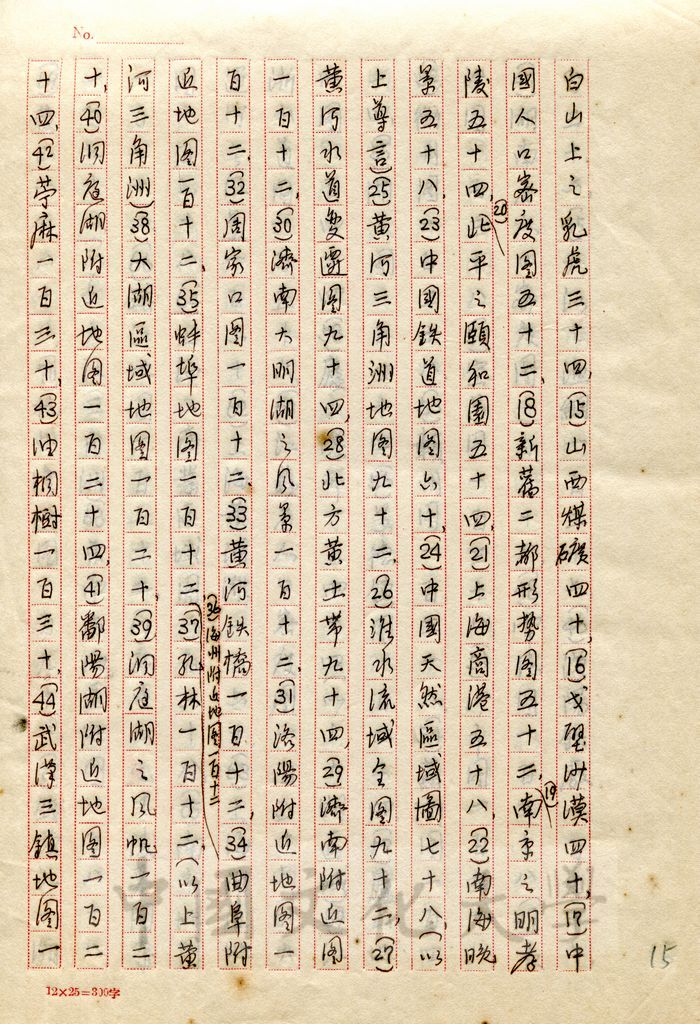 No.
白山上之乳虎三十四,(15)山西煤礦四十,(16)戈壁沙漠四十,(17)中
國人口密度图五十二,(18)新舊二都形势图五十二,(19)南京之明孝
陵五十四,(20)北平之頤和園五十四,(21)上海商港五十八,(22)南海晚
景五十八,(23)中國鉄道地图六十,(24)中國天然區域圖七十八,(以
上導言)(25)黄河三角洲地图九十二,(26)淮水流域全图九十二,(27)
黄河水道变遷图九十四,(28)北方黄土带九十四,(29)濟南附近图
一百十二,(30)濟南大明湖之风景一百十二,(31)洛陽附近地图一
百十二,(32)周家口图一百十二,(33)黄河鉄橋一百十二,(34)曲阜附
近地图一百十二,(35)蚌埠地图一百十二(36)海州附近地图一百十二(37)孔林一百十二,(以上黄
河三角洲)(38)大湖區域地图一百二十,(39)洞庭湖之风帆一百二
十,(40)洞庭湖附近地图一百二十四,(41)鄱陽湖附近地图一百二
十四,(42)苧麻一百三十,(43)油桐樹一百三十,(44)武漢三鎮地图一
12×25=300字
15
中國文化大學